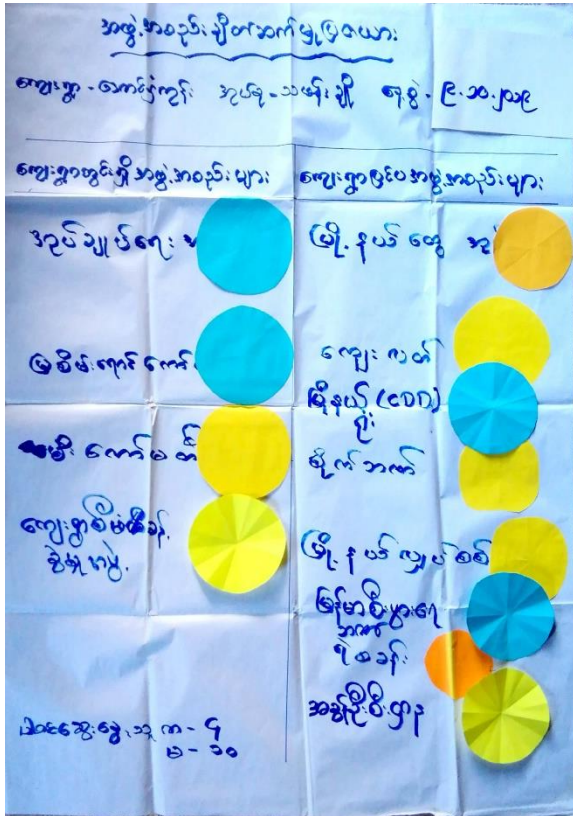 အဖွဲ့အစည်းချိတ်ဆက်မှုပြဇယား
ကျေးရွာ - အုပ်စု - သမုန်းချို နေ့စွဲ - ၉.၁၀.၂၀၁၉
ကျေးရွာတွင်းရှိအဖွဲ့အစည်းများ
အုပ်ချုပ်ရေး
မြစိမ်းရောင် ကော်
မီး ကော်မတီ
ကျေးရွာစီမံခန့်
ခွဲမှုအဖွဲ့
ဆွေးနွေးသူ ကျား - ၄
မ - ၁၀
ကျေးရွာပြင်ပအဖွဲ့အစည်းများ
မြို့နယ်ထွေ အုပ်
ကျေးလက်
မြို့နယ် (CDD)
ရုံး
စိုက်ဘဏ်
မြို့နယ်လျှပ်စစ်
မြန်မာစီးပွားရေး
ဘဏ်
ရဲစခန်း
အခွန်ဦးစီးဌာန